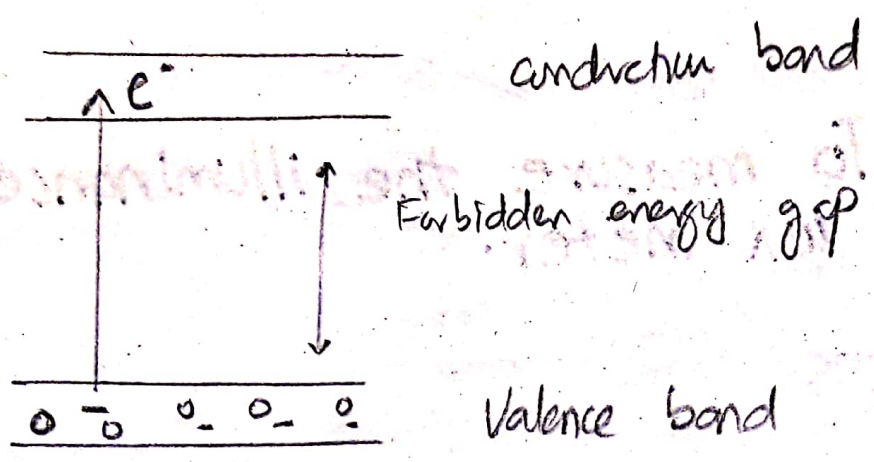 conduction bond
e-
Forbidden energy gap
Valence bond